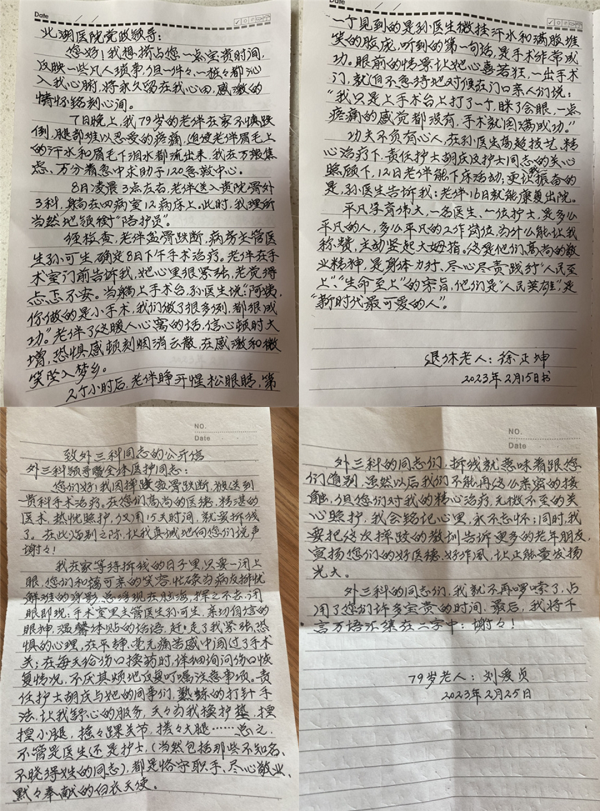 Date
北湖医院党政领导：
您们好！我想挤占您一点宝贵时间，
反映一些凡人琐事，但一件々、一桩々都沁
入我心肺，将永久留在我心田，感激的
情怀铭刻心间。
7日晚上，我79岁的老伴在家不慎跌
倒，腿部难以忍受的疼痛，迫使老伴眉毛上
的汗水和眉毛下泪水都流出来，我在万般焦
虑、万分着急中求助于120急救中心。
8日凌晨3点左右，老伴送入贵院骨外
3科，躺在四病室12病床上。此时，我理所
当然地领衔“陪护员”。
经检查，老伴盆骨跌断，病房主管医
生孙可生确定8日下午手术治疗。老伴在手
术室门前告诉我，她心里很紧张，老觉得
忐忑不安。当躺上手术台，孙医生说“阿姨，
你做的是小手术，我们做了很多例，都很成
功。”老伴听了这暖人心窝的话，信心顿时大
增，恐惧感顷刻烟消云散，在感激和微
笑坠入梦乡。
2个小时后，老伴睁开惺松眼睛，第
Date
一个见到的是孙医生微挂汗水和满脸堆
笑的脸庞，听到的第一句话，是手术非常成
功。眼前的情景让她心喜若狂，一出手术
门，就迫不急待地对候在门口亲人们说：
“我只是上手术台上打了一个盹，睐了会眼，一点
疼痛的感觉都没有，手术就圆满成功。”
功夫不负有心人，在孙医生高超技艺、精
心治疗下，责任护士胡庆及护士同志的关心
照顾下，12日老伴能下床活动，更认振奋的
是，孙医生告诉我：老伴16日就能康复出院。
平凡孕育伟大，一名医生、一位护士，是多么
平凡的人，多么平凡的工作岗位，为什么能让我
称赞，主动竖起大姆指。这是他们高尚的敬
业精神，是身体力行、尽心尽责践行“人民至
上”、“生命至上”的宗旨，他们是“人民英雄”，是
“新时代最可爱的人”。
退休老人：徐正坤
2023年2月15日书
NO.
Date
致外三科同志的公开信
外三科领导暨全体医护同志：
您们好！我因摔跤盆骨跌断，被送到
贵科手术治疗。在您们高尚的医德、精湛的
医术、热忱照护，仅用15天时间，就要拆线
了。在此临别之际，让我真诚地向您们说声
谢々！
我在家等待拆线的日子里，只要一闭上
眼，您们和蔼可亲的笑容、忙碌为病友排忧
解难的身影，总浮现在脑海，挥之不去；闭
眼即现；手术室里主管医生孙可生，亲切自信的
眼神，温馨体贴的话语，赶走了我紧张恐
惧的心理，在平静、毫无痛苦感中闯过了手术
关；在每天给伤口换药时，详细询问伤口恢
复情况，不厌其烦地反复叮嘱注意事项，责
任护士胡庆与她的同事们，熟练的打针手
法，让我舒心的服务，天々为我换护垫，摆
摆小腿，揉々踝关节，搓々大腿……总之，
不管是医生还是护士，（当然包括那些不知名、
不晓得姓的同志），都是恪守职手、尽心敬业、
默々奉献的白衣天使。
NO.
Date
外三科的同志们，拆线就意味着跟您
们道别，虽然以后我们不能再这么亲密的接
触，但您们对我的精心治疗、无微不至的关
心照护，我会铭记心里，永不忘怀；同时，我
要把这次摔跤的教训告诉更多的老年朋友，
宣扬您们的好医德、好作风，让正能量发扬
光大。
外三科的同志们，我就不再啰嗦了，占
用了您们许多宝贵的时间。最后，我将千
言万语汇集在二字中：谢々！
79岁老人：刘爱贞
2023年2月25日